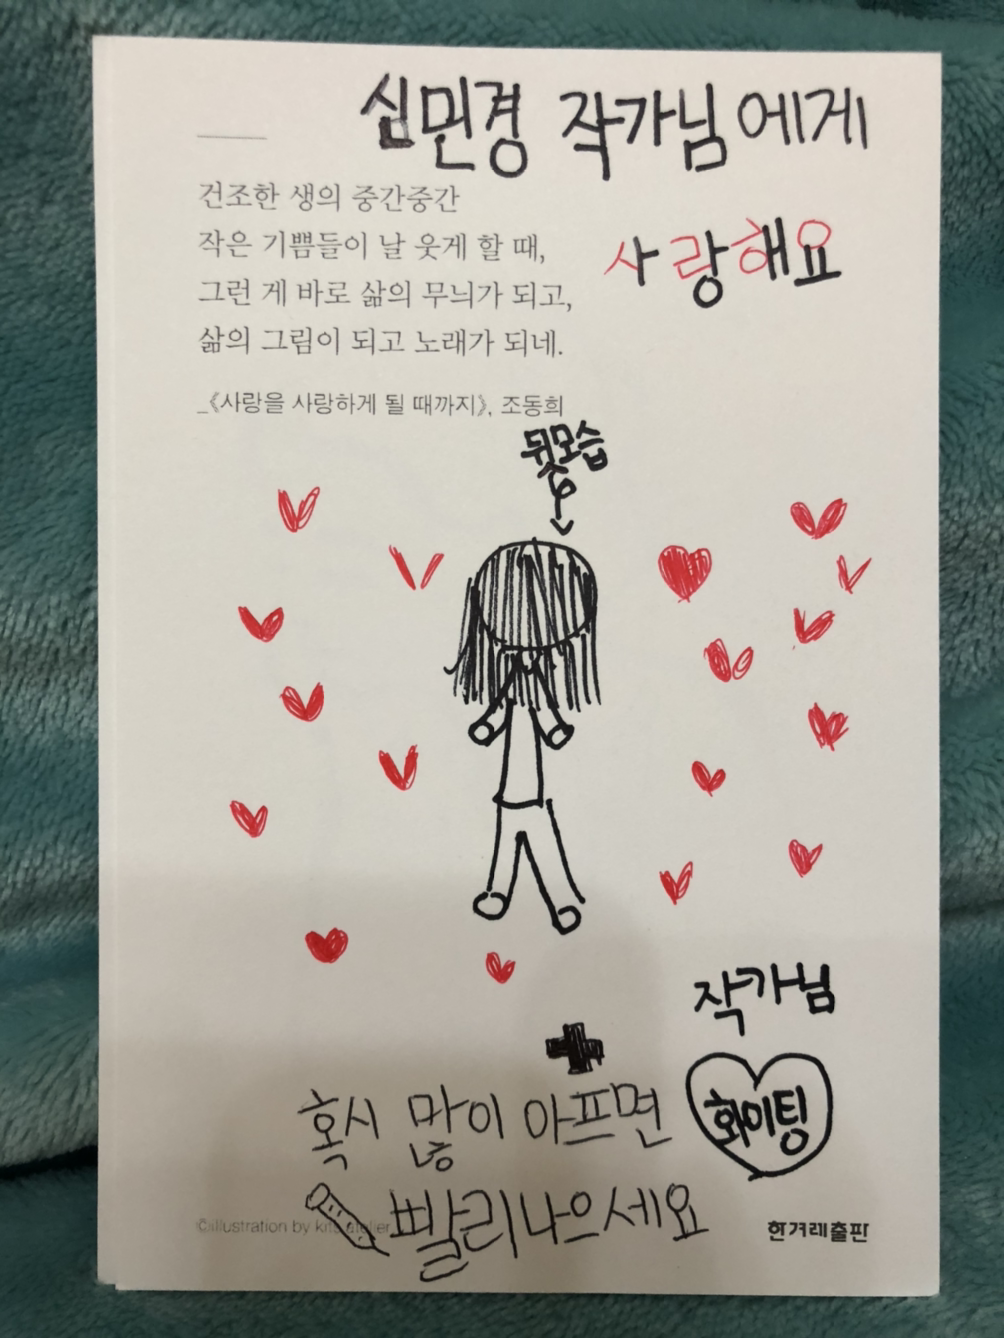 심민경 작가님에게
건조한 생의 중간중간
작은 기쁨들이 날 웃게 할 때,
사랑해요
그런 게 바로 삶의 무늬가 되고,
삶의 그림이 되고 노래가 되네.
_《사랑을 사랑하게 될 때까지》, 조동희
뒷모습
작가님
화이팅
혹시 많이 아프면
빨리 나으세요
©illustration by kits atelier
한겨레출판